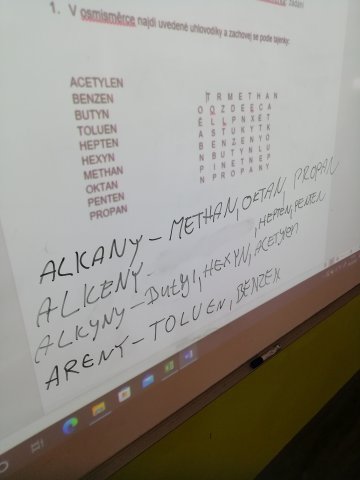 zadání
1. V osmisměrce najdi uvedené uhlovodíky a zachovej se podle tajenky:
ACETYLEN
BENZEN
BUTYN
TOLUEN
HEPTEN
HEXYN
METHAN
OKTAN
PENTEN
PROPAN
T R M E T H A N
O O Z D E E C A
É L L P N X E T
A S T U K Y T K
O B E N Z E N Y O
N B U T Y N L U
P I N E T N E P
N P R O P A N Y
ALKANY – METHAN, OKTAN, PROPAN
ALKENY – HEPTEN, PENTEN
ALKYNY – BUTYN, HEXYN, ACETYLEN
ARENY – TOLUEN, BENZEN